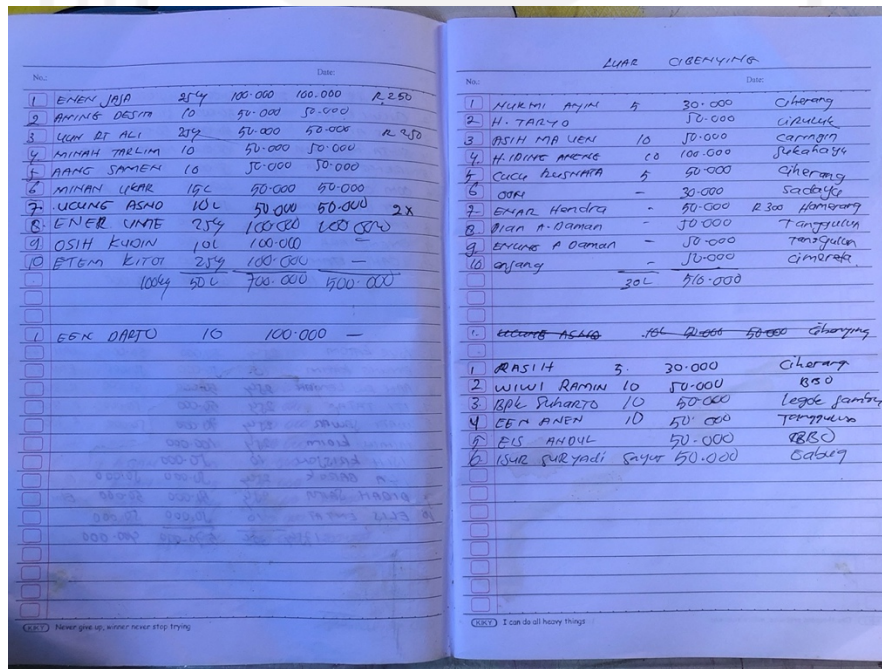 No.: Date:
1 ENEN JAJA 25 kg 100.000 100.000 R 250
2 AMING DESITA 10 50.000 50.000
3 YUN RT ALI 25 kg 50.000 50.000 R 250
4 MINAH TARLIM 10 50.000 50.000
5 AANG SAMEN 10 50.000 50.000
6 MINAN UKAR 15 L 50.000 50.000
7. UCUNG ASNO 10 L 50.000 50.000 2x
8. ENER UNTE 25 kg 100.000 100.000
9 OSIH KUDIN 10 L 100.000 —
10 ETEM KITOT 25 kg 100.000 —
100 kg 50 L 700.000 500.000
1 EEN DARTO 10 100.000 —
KKY Never give up, winner never stop trying
LUAR CIBENYING
No.: Date:
1 NUKMI AYIN 5 30.000 Ciherang
2 H. TARYO 50.000 CIPULUK
3 ASIH MA UEN 10 50.000 Caringin
4. H. IDING ANENG 10 100.000 Sukahayu
5 CUCU KUSNATA 5 50.000 Ciherang
6 OOM — 30.000 Sadaya
7 ENAR Hendra - 50.000 R 300 Homerang
8. Dian A. Daman — 50.000 Tanggulun
9 ENUNG A Daman — 50.000 Tanggulun
10 enjang — 50.000 Cimareta
30 L 510.000
1. UCUNG ASNO 10 L 50.000 Cibenying
1 RASIH 5. 30.000 Ciherang
2 WIWI RAMIN 10 50.000 BBO
3 BPK Suharto 10 50.000 Legok
4 EEN ANEN 10 50.000 Tanggulun
5 EIS ANDUL 50.000 BBO
6 ISUR SURYADI Sayur 50.000 Babug
KKY I can do all heavy things